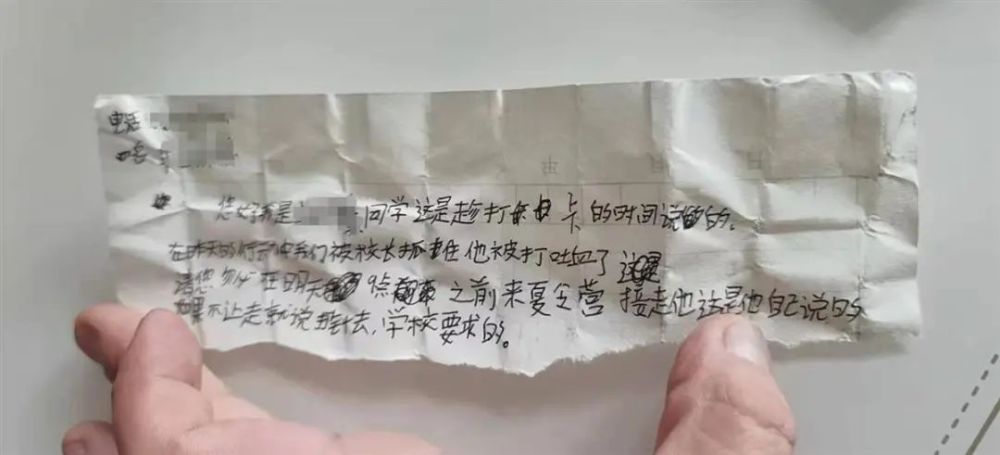 电话
您好我是 同学这是趁打卡的时间说的。
在昨天的行动中我们被校长抓住他被打吐血了
请您务必在明天9点 之前来夏令营接走他这是他自己说的
如果不让走就说 去,学校要求的。